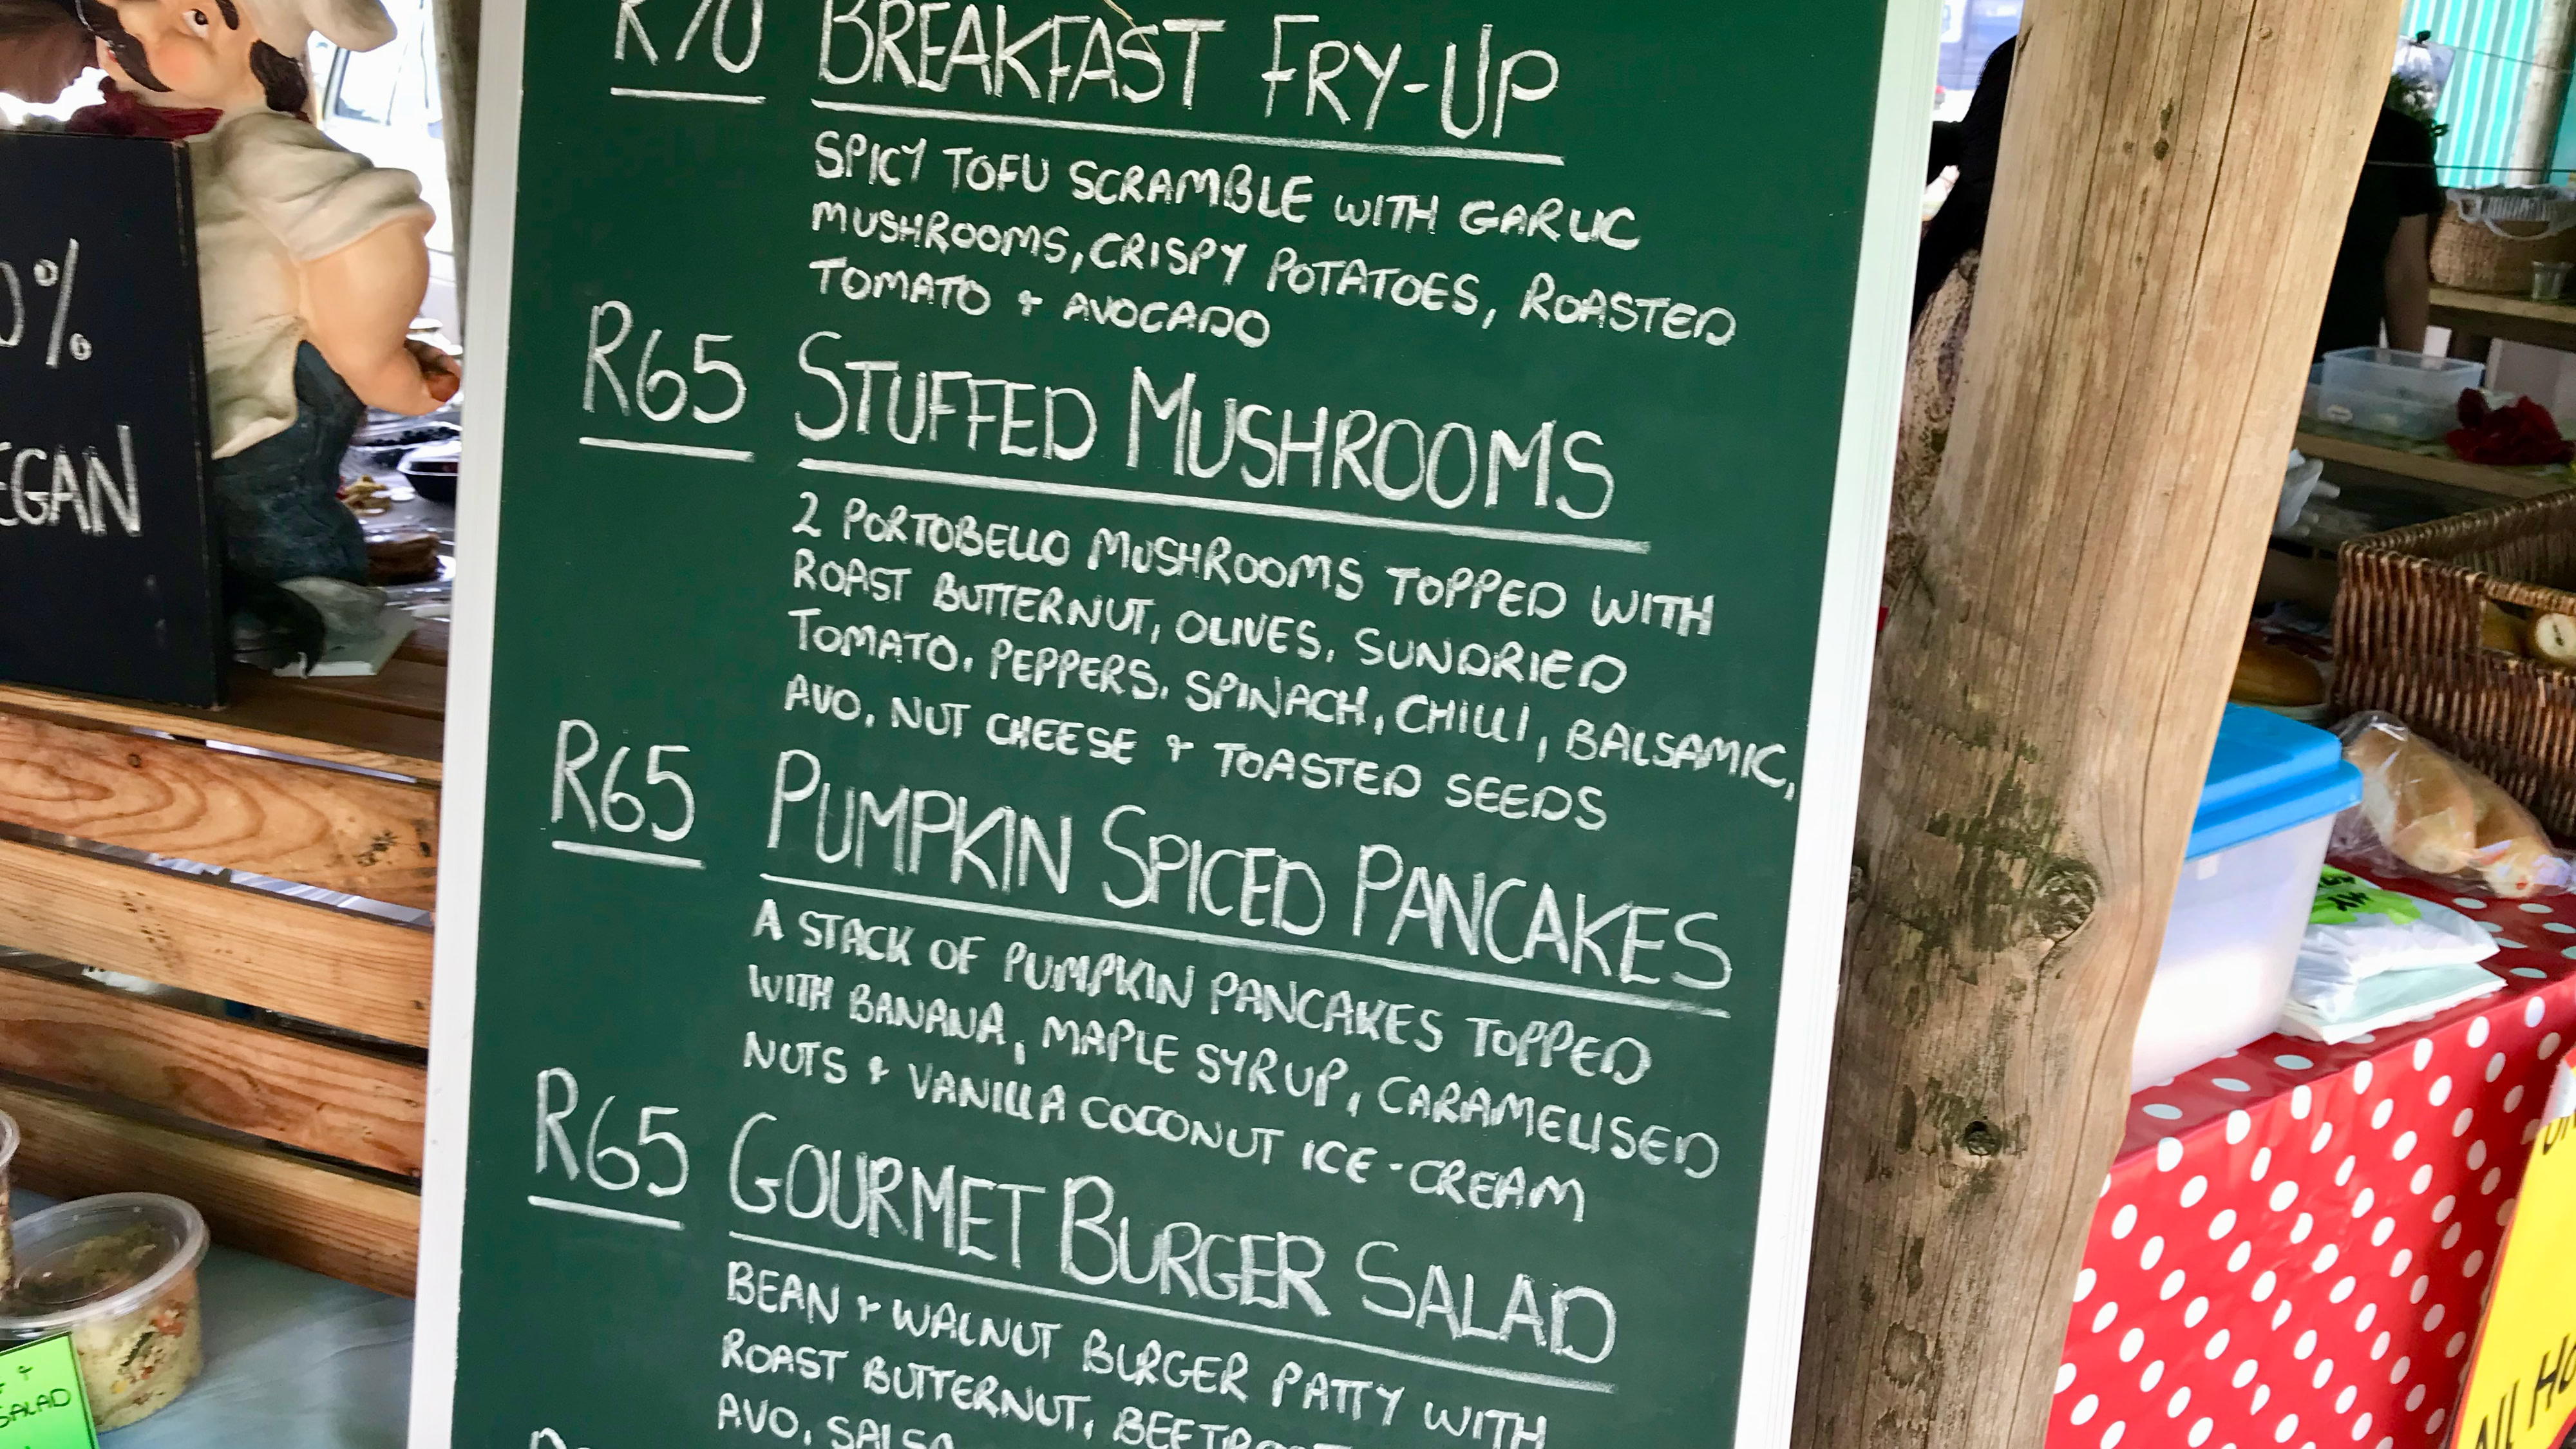 R70 BREAKFAST FRY-UP
SPICY TOFU SCRAMBLE WITH GARLIC
MUSHROOMS, CRISPY POTATOES, ROASTED
TOMATO + AVOCADO
R65 STUFFED MUSHROOMS
2 PORTOBELLO MUSHROOMS TOPPED WITH
ROAST BUTTERNUT, OLIVES, SUNDRIED
TOMATO, PEPPERS, SPINACH, CHILLI, BALSAMIC,
AVO, NUT CHEESE + TOASTED SEEDS
R65 PUMPKIN SPICED PANCAKES
A STACK OF PUMPKIN PANCAKES TOPPED
WITH BANANA, MAPLE SYRUP, CARAMELISED
NUTS + VANILLA COCONUT ICE-CREAM
R65 GOURMET BURGER SALAD
BEAN + WALNUT BURGER PATTY WITH
ROAST BUTTERNUT, BEETROOT
AVO, SALSA
0%
EGAN
+
SALAD